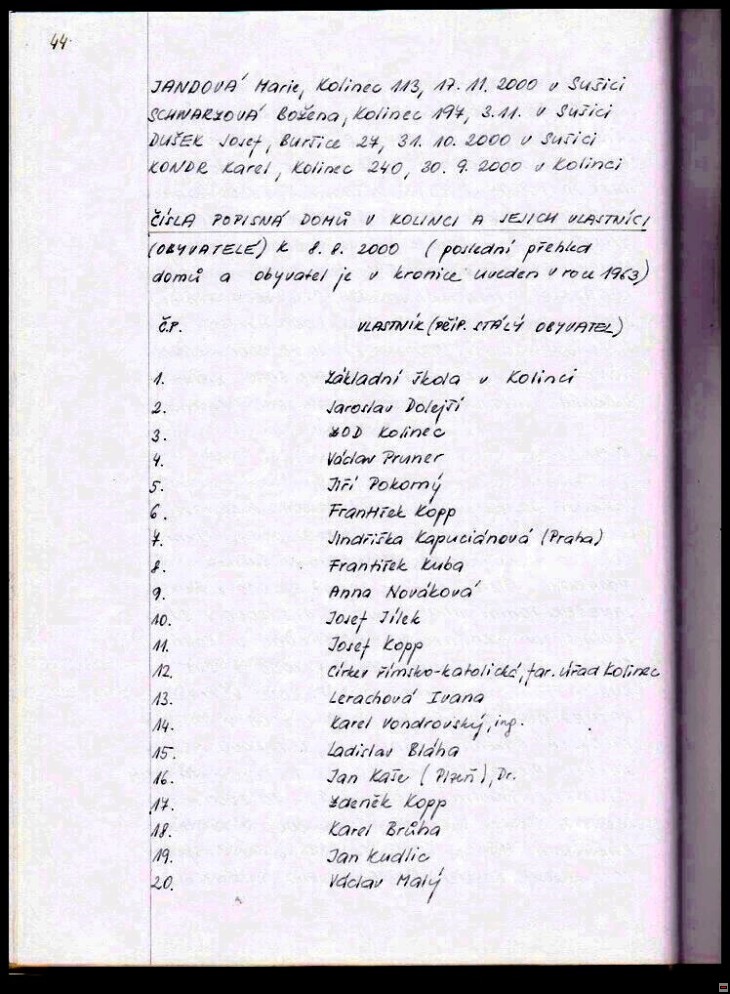 44.
JANDOVÁ Marie, Kolinec 113, 17.11. 2000 v Sušici
SCHWARZOVÁ Božena, Kolinec 197, 3.11. v Sušici
DUŠEK Josef, Buršice 27, 31. 10. 2000 v Sušici
KONDR Karel, Kolinec 240, 30. 9. 2000 v Kolinci
ČÍSLA POPISNÁ DOMŮ V KOLINCI A JEJICH VLASTNÍCI
(OBYVATELÉ) K 8. 8. 2000 (poslední přehled
domů a obyvatel je v kronice uveden v roce 1963)
Č.P. VLASTNÍK (PŘÍP. STÁLÝ OBYVATEL)
1. Základní škola v Kolinci
2. Jaroslav Dolejší
3. ZOD Kolinec
4. Václav Pruner
5. Jiří Pokorný
6. František Kopp
7. Jindřiška Kapuciánová (Praha)
8. František Kuba
9. Anna Nováková
10. Josef Jílek
11. Josef Kopp
12. Církev římsko-katolická, far. úřad Kolinec
13. Lerachová Ivana
14. Karel Vondrovský, ing.
15. Ladislav Bláha
16. Jan Kaše (Plzeň), Dr.
17. Zdeněk Kopp
18. Karel Brůha
19. Jan Kudlic
20. Václav Malý